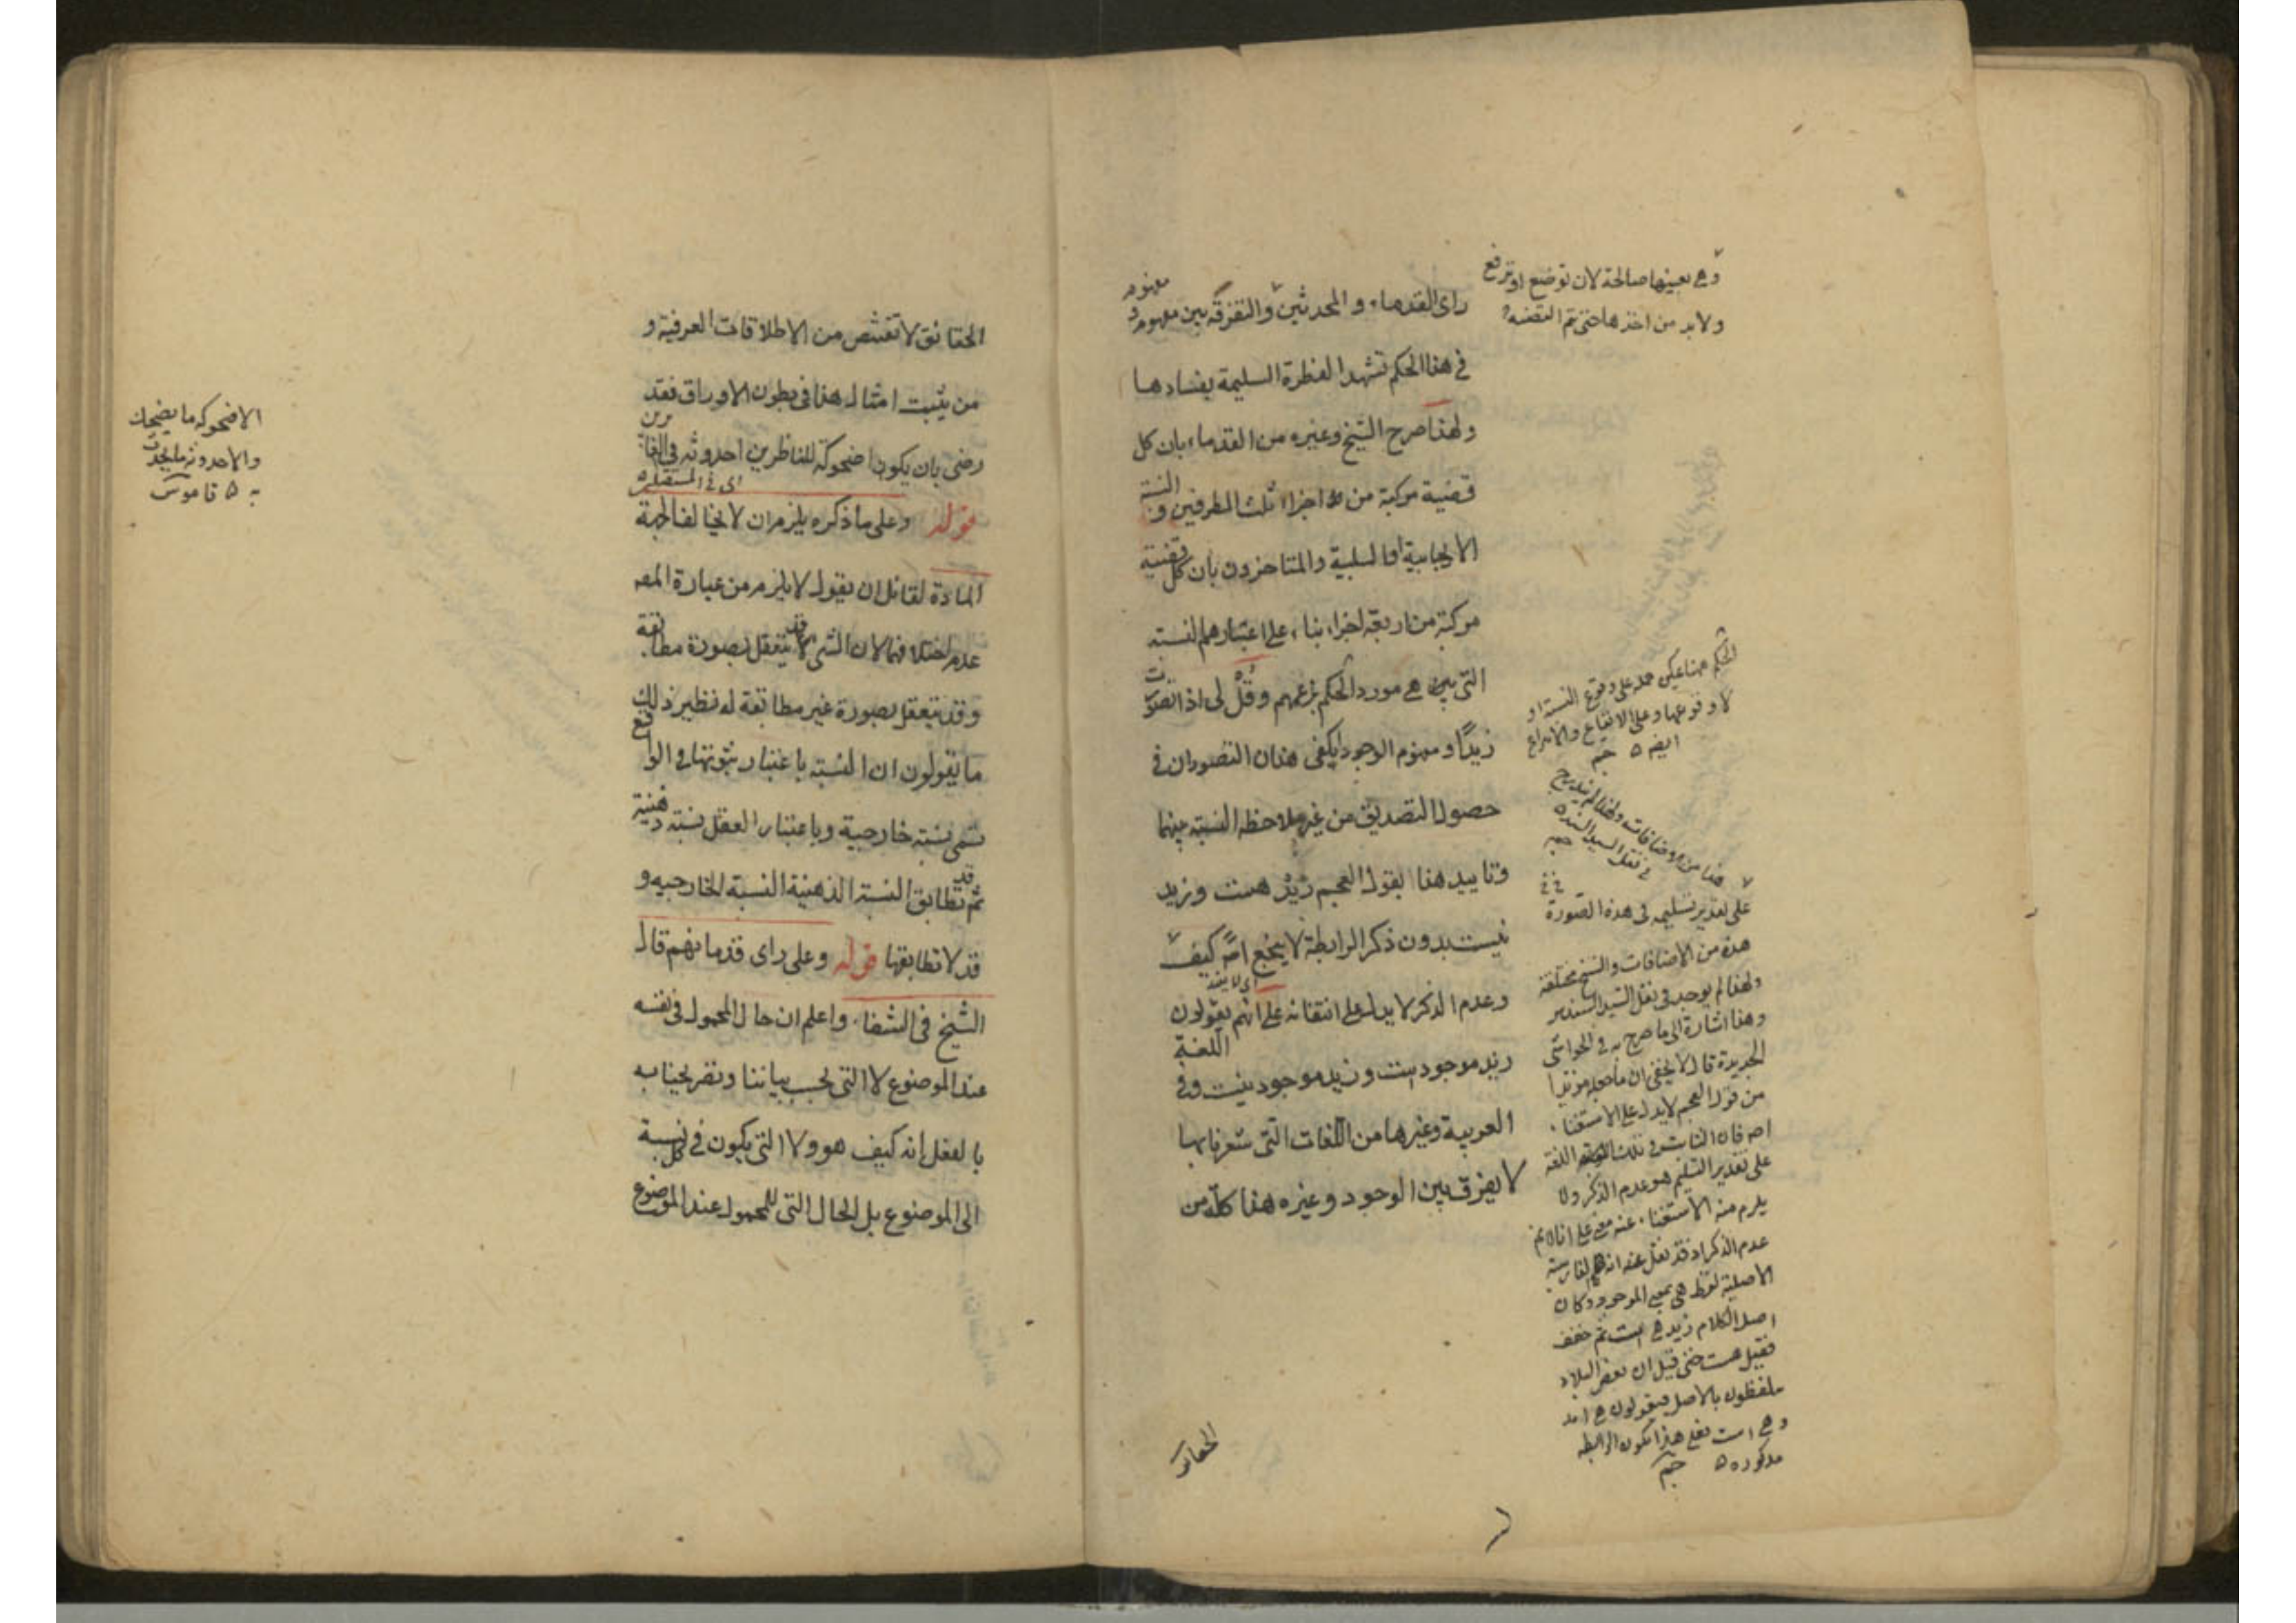 راى القدماء و المحدثين والتفرقة بين مفهوم و مفهوم
في هذا الحكم تشهد الفطرة السليمة بفسادها
ولهذا صرح الشيخ وغيره من القدماء بان كل
قضية مركبة من اجزاء ثلث الطرفين و النسبة
الايجابية او السلبية والمتاخرون بان كل قضية
مركبة من اربعة اجزاء بناء على اعتبارهم النسبة
التي هي مورد الحكم بزعمهم وقل لى اذا تصورت
زيدا و مفهوم الوجود ايكفى هذان التصوران في
حصول التصديق من غير ملاحظة النسبة بينهما
وتاييد هذا بقول العجم زيد هست وزيد
نيست بدون ذكر الرابطة لا ينجع اصلا كيف
اى لا يفيد
وعدم الذكر لا يدل على انتفائه على انهم يقولون
زيد موجود است و زيد موجود نيست وفي اللغة
العربية وغيرها من اللغات التى شعرنا بها
لا يفرق بين الوجود وغيره هذا كله من
الحقائق
وهي بعينها صالحة لان توضع او ترفع
ولا بد من اخذها حتى تتم القضية
الحكم ههنا يمكن حمله على وقوع النسبة او
لا وقوعها وعلى الايقاع والانتزاع
ايضه
هذا من الاضافات ولهذا لم يندرج
في نقل السيد السند
على تقدير تسليمه في هذه الصورة
هذه من الاضافات والنسخ مختلفة
ولهذا لم يوجد في نقل السيد السند
وهذا اشارة الى ما صرح به في الحواشي
الجديدة قال لا يخفى ان ما جعله مؤيدا
من قول العجم لا يدل على الاستغناء
اصه فان الثابت في تلك اللغة
على تقدير التسليم هو عدم الذكر ولا
يلزم منه الاستغناء عنه مع انا لانم
عدم الذكر اذ قد نقل عنه ان في الفارسية
الاصلية لفظ هى بمعنى الموجود وكان
اصل الكلام زيد هى است ثم خفف
فقيل هست حتى قيل ان بعض البلاد
يتلفظون بالاصل فيقولون هى اند
وهى است فعلى هذا تكون الرابطة
مذكورة
الحقائق لا تقتنص من الاطلاقات العرفية و
من يثبت امثال هذا في بطون الاوراق فقد
رضى بان يكون اضحوكة للناظرين احدوثة في الغابرين
اى في المستقبل
قوله وعلى ما ذكره يلزم ان لا يخالف الجهة
المادة لقائل ان يقول لا يلزم من عبارة المصه
عدم اختلافهما لان الشى قد يتعقل بصورة مطابقة
وقد يتعقل بصورة غير مطابقة له نظير ذلك
ما يقولون ان النسبة باعتبار ثبوتها في الواقع
تسمى نسبة خارجية وباعتبار العقل نسبة ذهنية
ثم قد تطابق النسبة الذهنية النسبة الخارجية و
قد لا تطابقها قوله وعلى راى قدمائهم قال
الشيخ في الشفاء واعلم ان حال المحمول في نفسه
عند الموضوع لا التى بحسب بياننا وتصريحنا به
بالفعل انه كيف هو ولا التى يكون في كل نسبة
الى الموضوع بل الحال التى للمحمول عند الموضوع
الاضحوكة ما يضحك
والاحدوثة ما يتحدث
به قاموس